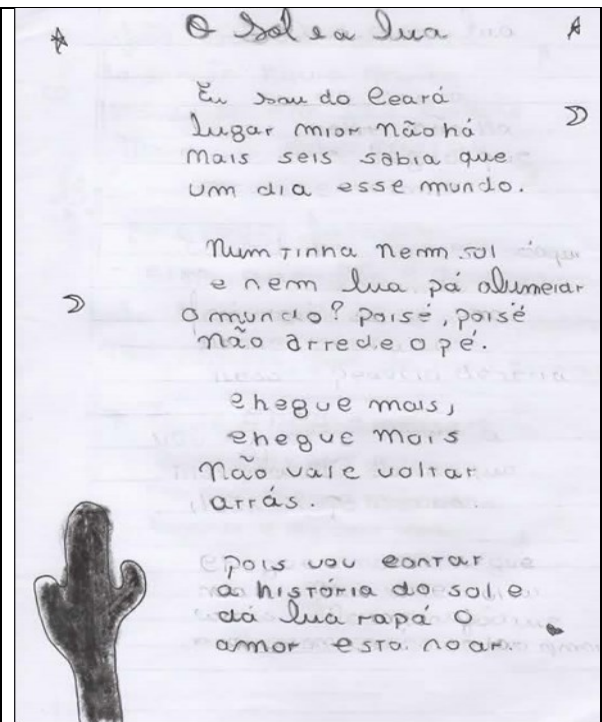 O Sol e a lua
Eu sou do Ceará
lugar mior não há
mais seis sabia que
um dia esse mundo.
Num tinha nem sol
e nem lua pá alumeiar
o mundo? poisé, poisé
não arrede o pé.
chegue mais,
chegue mais
não vale voltar
atrás.
pois vou contar
a história do sol e
da lua rapá o
amor esta no ar.